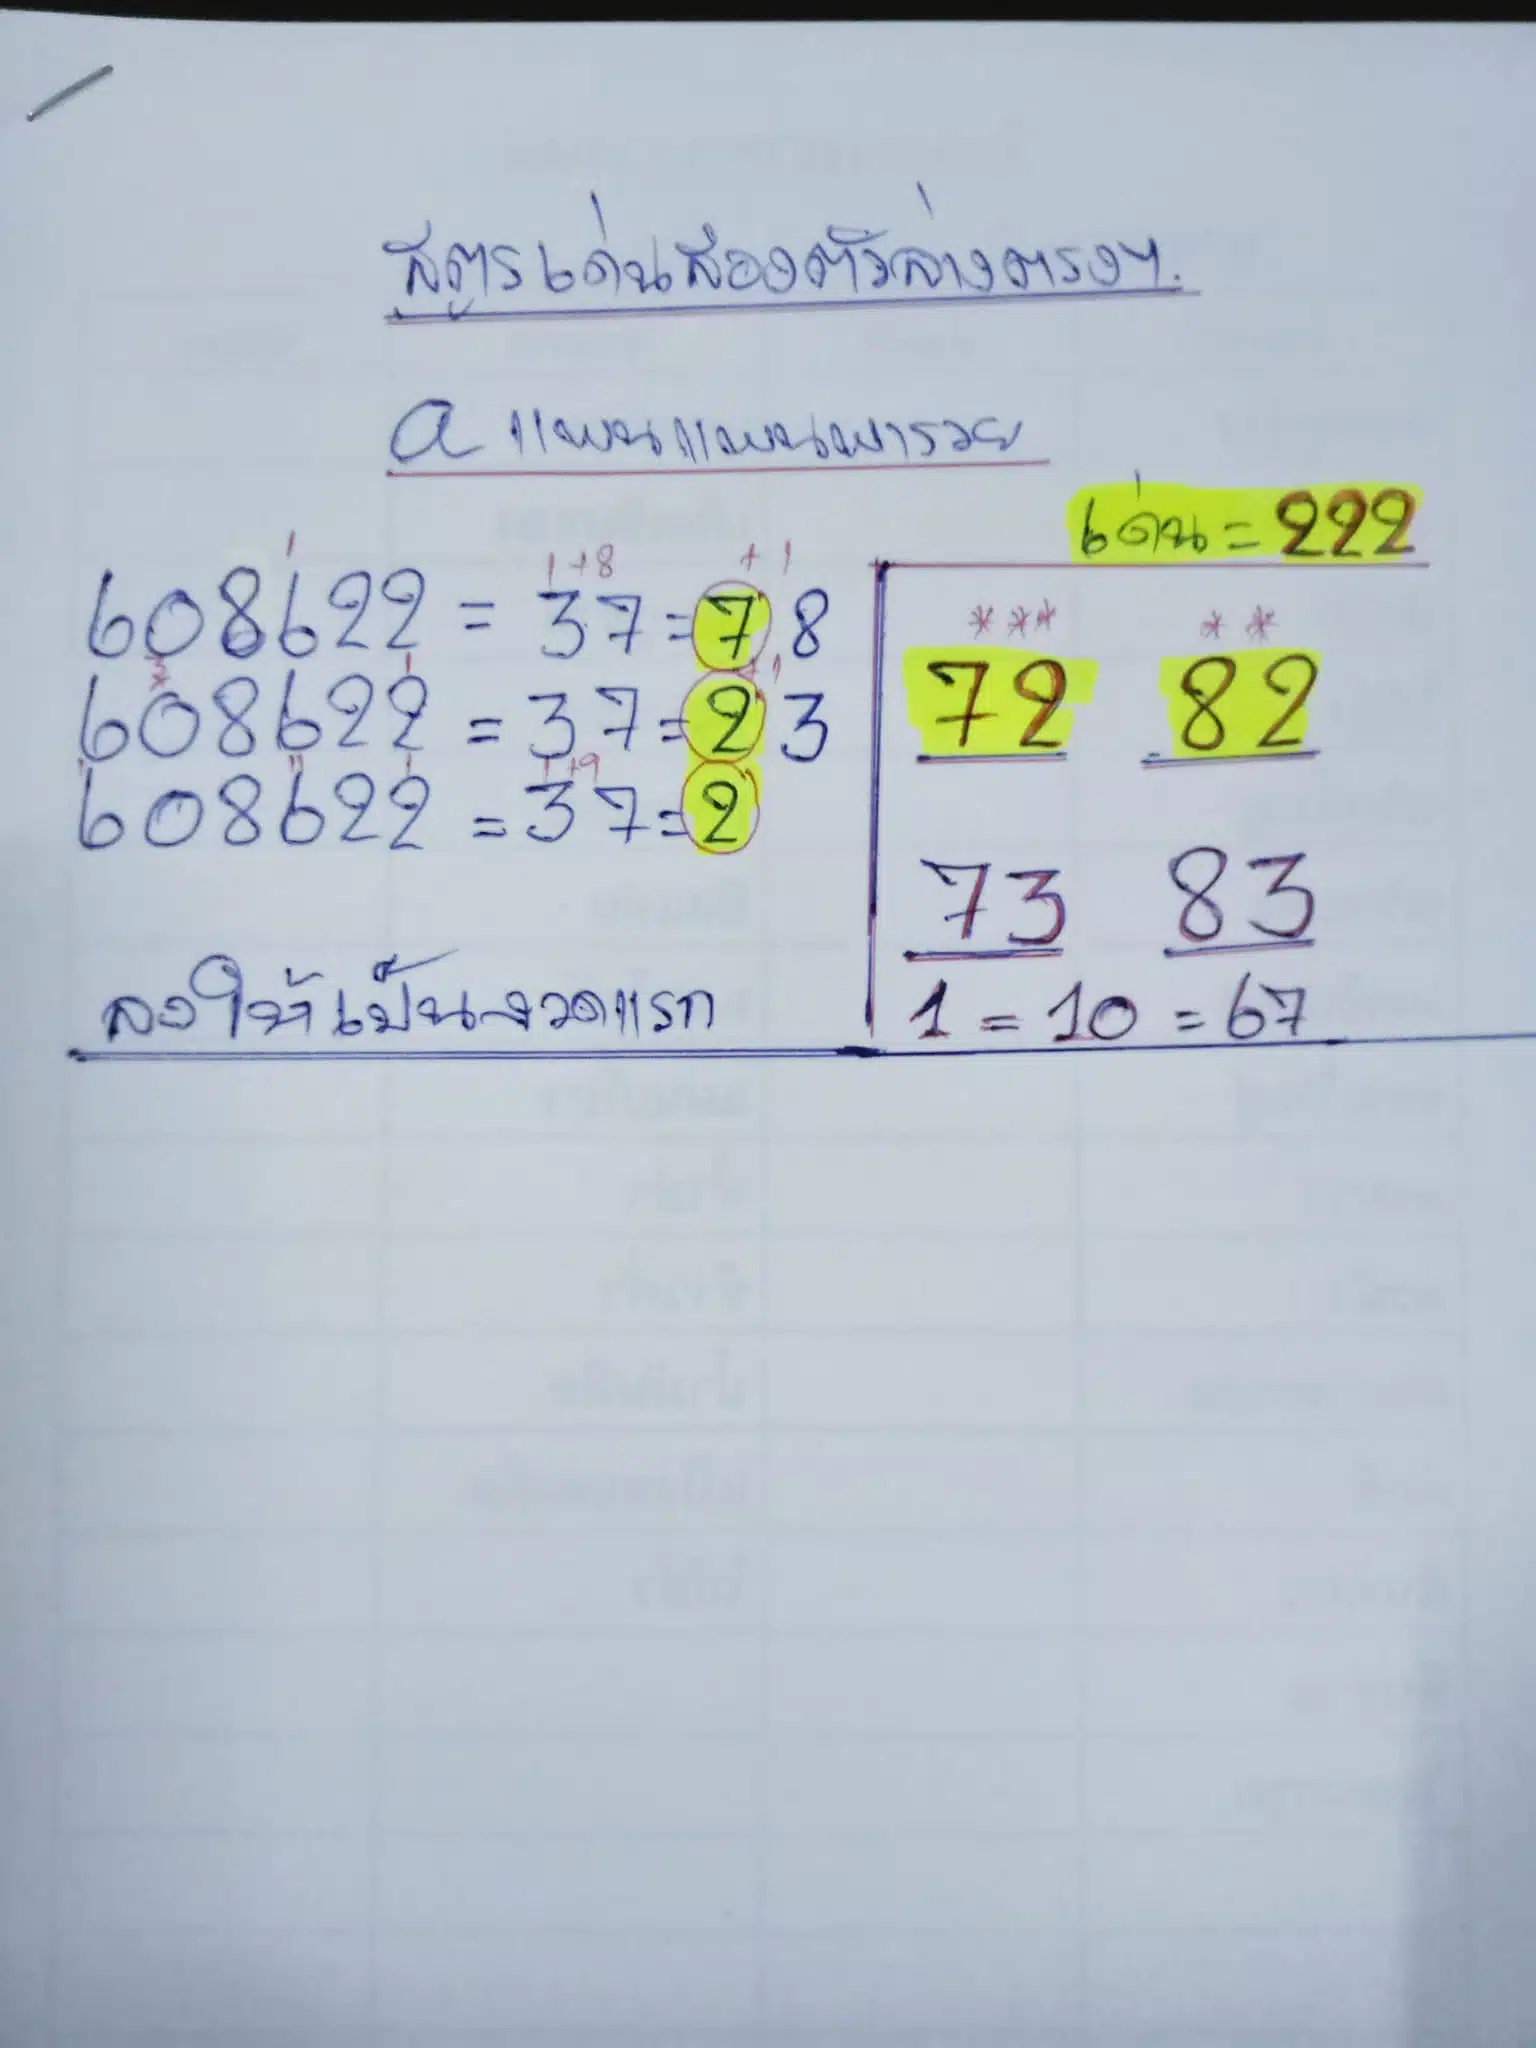 สูตรเด่นสองตัวล่างตรงๆ.
a แพนแพนพารวย
เด่น = 222
1
1 +8
+ 1
608622 = 37 = 7 8
*** **
72 82
608622 = 37 = 2 3
+9
608622 = 37 = 2
73 83
ลงให้เป็นงวดแรก
1 = 10 = 67